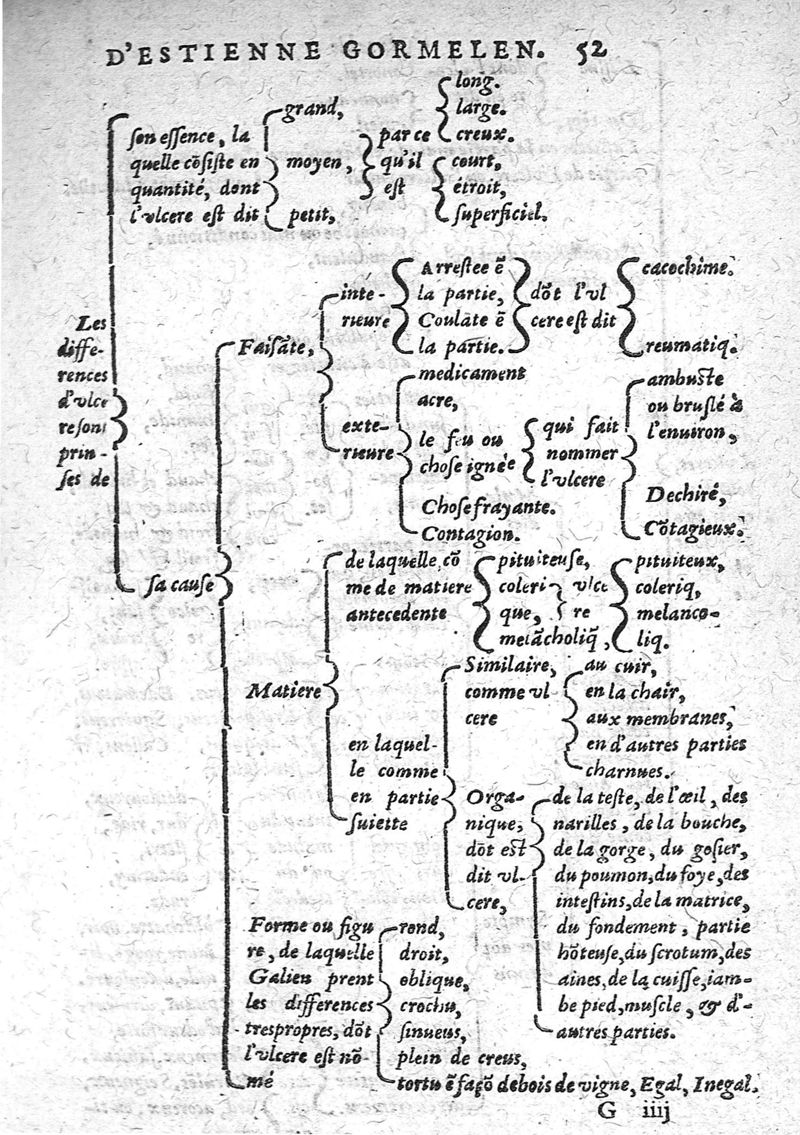 D'ESTIENNE GORMELEN. 52
Les
diffe-
rences
d'vlce
re sont
prin-
ses de
son essence, la
quelle cõsiste en
quantité, dont
l'vlcere est dit
grand,
moyen,
petit,
par ce
qu'il
est
long.
large.
creux.
court,
étroit,
superficiel.
sa cause
Faisãte,
inte-
rieure
Arrestee ẽ
la partie,
Coulãte ẽ
la partie.
dõt l'vl
cere est dit
cacochime.
reumatiq.
exte-
rieure
medicament
acre,
le feu ou
chose ignée
Chose frayante.
Contagion.
qui fait
nommer
l'vlcere
ambuste
ou bruslé à
l'enuiron,
Dechiré,
Cõtagieux.
Matiere
de laquelle cõ
me de matiere
antecedente
pituiteuse,
coleri-
que,
melãcholiq,
vlce
re
pituiteux,
coleriq,
melanco-
liq.
en laquel-
le comme
en partie
suiette
Similaire,
comme vl
cere
au cuir,
en la chair,
aux membranes,
en d'autres parties
charnues.
Orga-
nique,
dõt est
dit vl-
cere,
de la teste, de l'œil, des
narilles, de la bouche,
de la gorge, du gosier,
du poumon, du foye, des
intestins, de la matrice,
du fondement, partie
hõteuse, du scrotum, des
aines, de la cuisse, iam-
be pied, muscle, & d'-
autres parties.
Forme ou figu
re, de laquelle
Galien prent
les differences
trespropres, dõt
l'vlcere est nõ-
mé
rond,
droit,
oblique,
crochu,
sinueus,
plein de creus,
tortu ẽ façõ de bois de vigne, Egal, Inegal.
G iiij